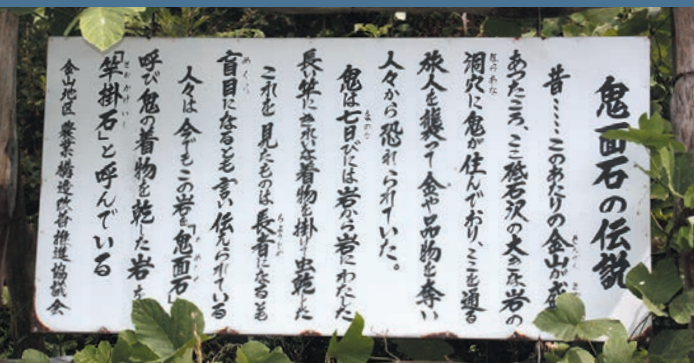 鬼面石の伝説
昔……このあたりの金山が
あったころ、ここ砥石沢の大きな岩の
洞穴に鬼が住んでおり、ここを通る
旅人を襲って金や品物を奪い
人々から恐れられていた。
鬼は七日びには岩から岩にわたした
長い竿にきれいな着物を掛け虫乾した
これを見たものは長者になるとも
盲目になるとも言い伝えられている
人々は今でもこの岩を「鬼面石」
呼び鬼の着物を乾した岩を
「竿掛石」と呼んでいる
金山地区 農業構造改善推進協議会